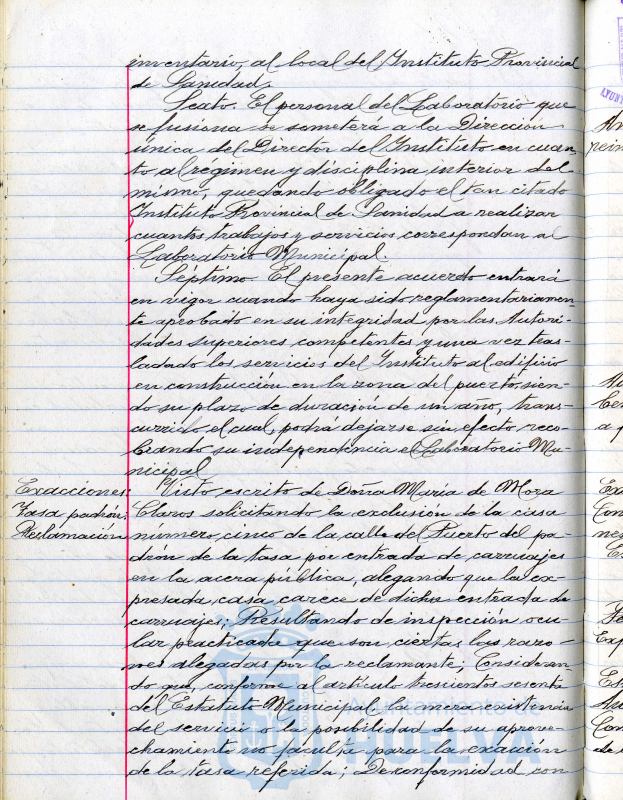 inventario, al local del Instituto Provincial
de Sanidad.
Sexto. El personal del Laboratorio que
se fusiona se someterá a la Dirección
única del Director del Instituto en cuan-
to al régimen y disciplina interior del
mismo, quedando obligado el tan citado
Instituto Provincial de Sanidad a realizar
cuantos trabajos y servicios correspondan al
Laboratorio Municipal.
Séptimo. El presente acuerdo entrará
en vigor cuando haya sido reglamentariamen-
te aprobado en su integridad por las Autori-
dades superiores competentes y una vez tras-
ladado los servicios del Instituto al edificio
en construcción en la zona del puerto, sien-
do su plazo de duración de un año, trans-
currido el cual, podrá dejarse sin efecto reco-
brando su independencia el Laboratorio Mu-
nicipal
Exacciones:
Tasa padrón:
Reclamación
Visto escrito de Doña María de Mora
Claros solicitando la exclusión de la casa
numero cinco de la calle del Puerto del pa-
drón de la tasa por entrada de carruajes
en la acera pública, alegando que la ex-
presada casa carece de dicha entrada de
carruajes; Resultando de inspección ocu-
lar practicada que son ciertas las razo-
nes alegadas por la reclamante; Consideran-
do que, conforme al artículo trescientos sesenta
del Estatuto Municipal la mera existencia
del servicio o la posibilidad de su aprove-
chamiento no faculta para la exacción
de la tasa referida; De conformidad con
Ayuntamiento de
HUELVA